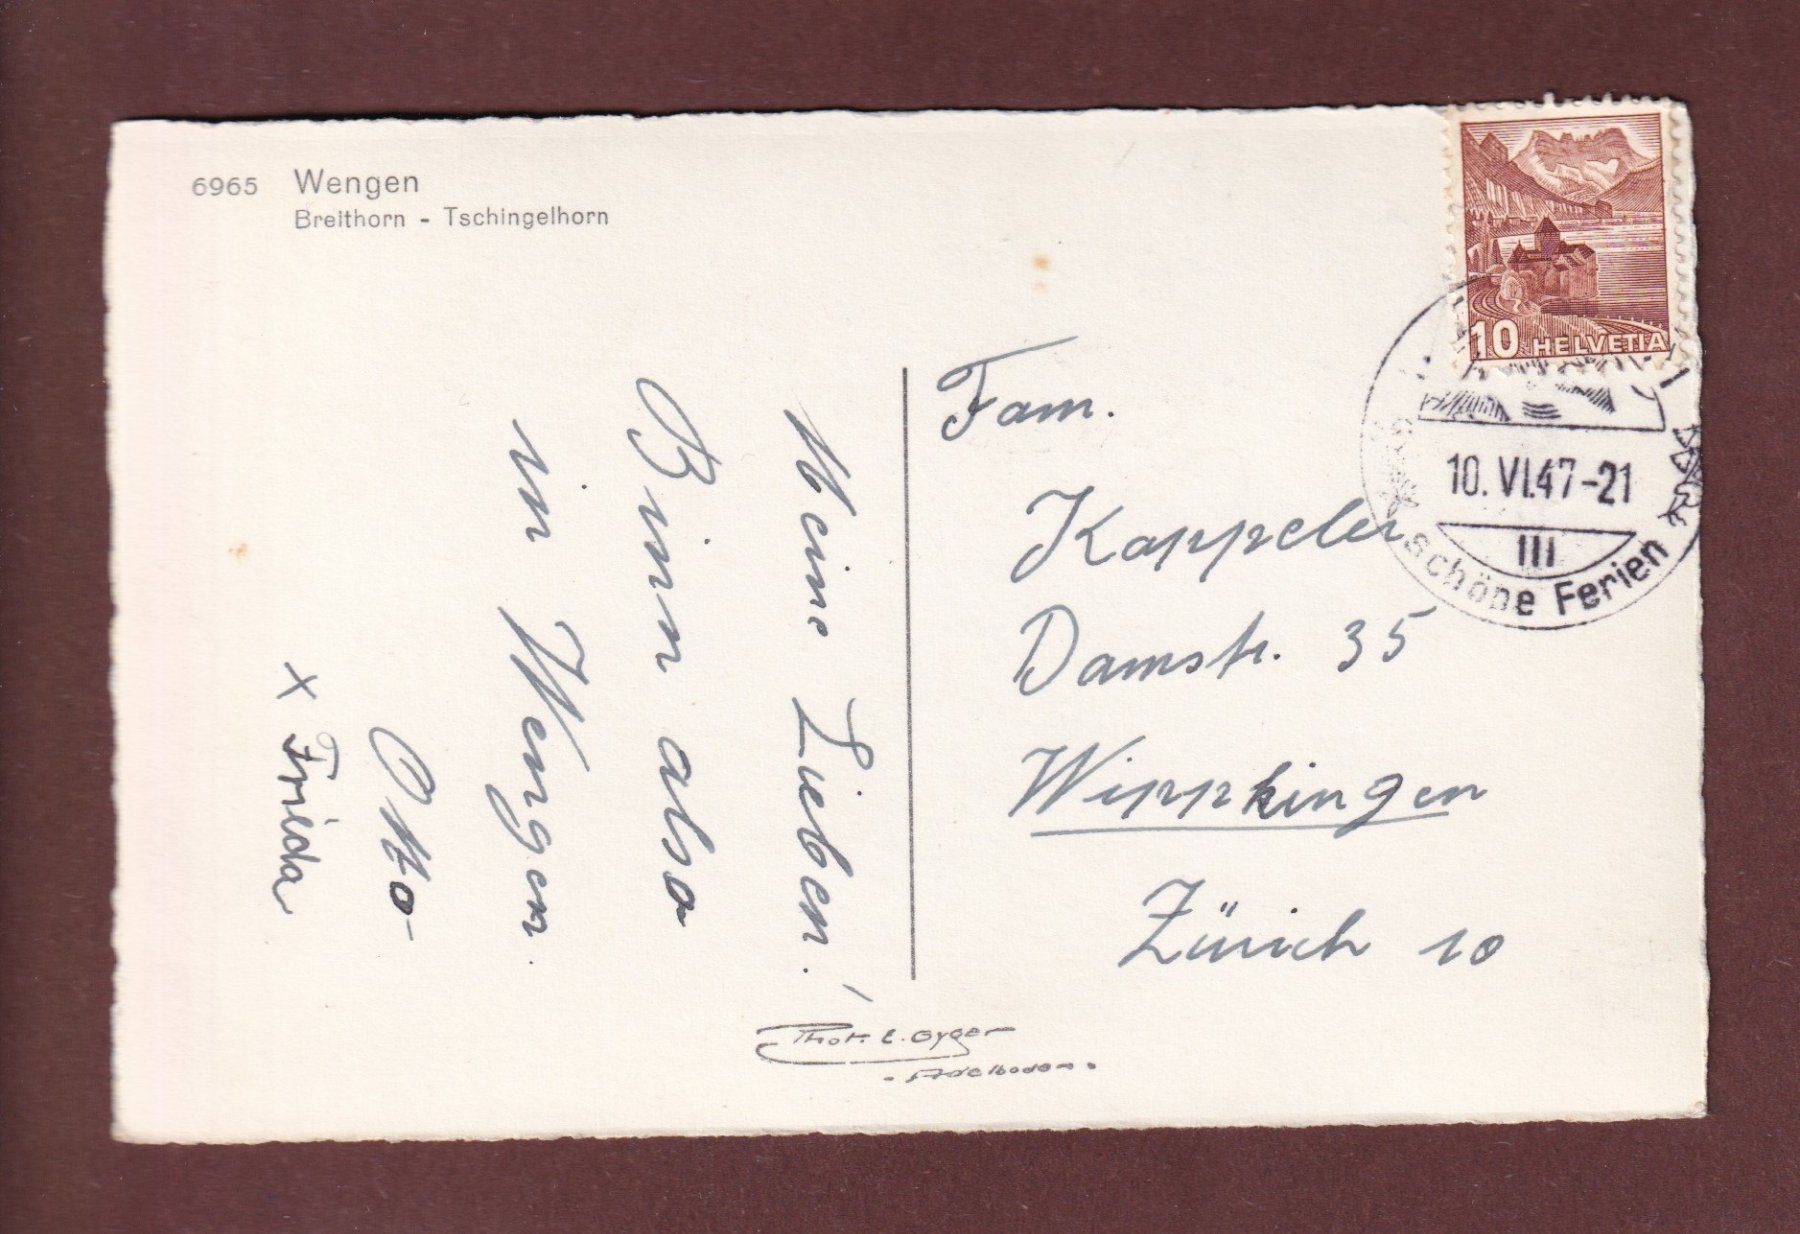 6965 Wengen
Breithorn - Tschingelhorn
10 HELVETIA
10. VI. 47-21
III
schöne Ferien
Fam.
Kappeler
Damstr. 35
Wippkingen
Zürich 10
Meine Lieben!
Binn also
in Wengen.
Otto-
x Frieda
Phot. E. Gyger
- Adelboden -